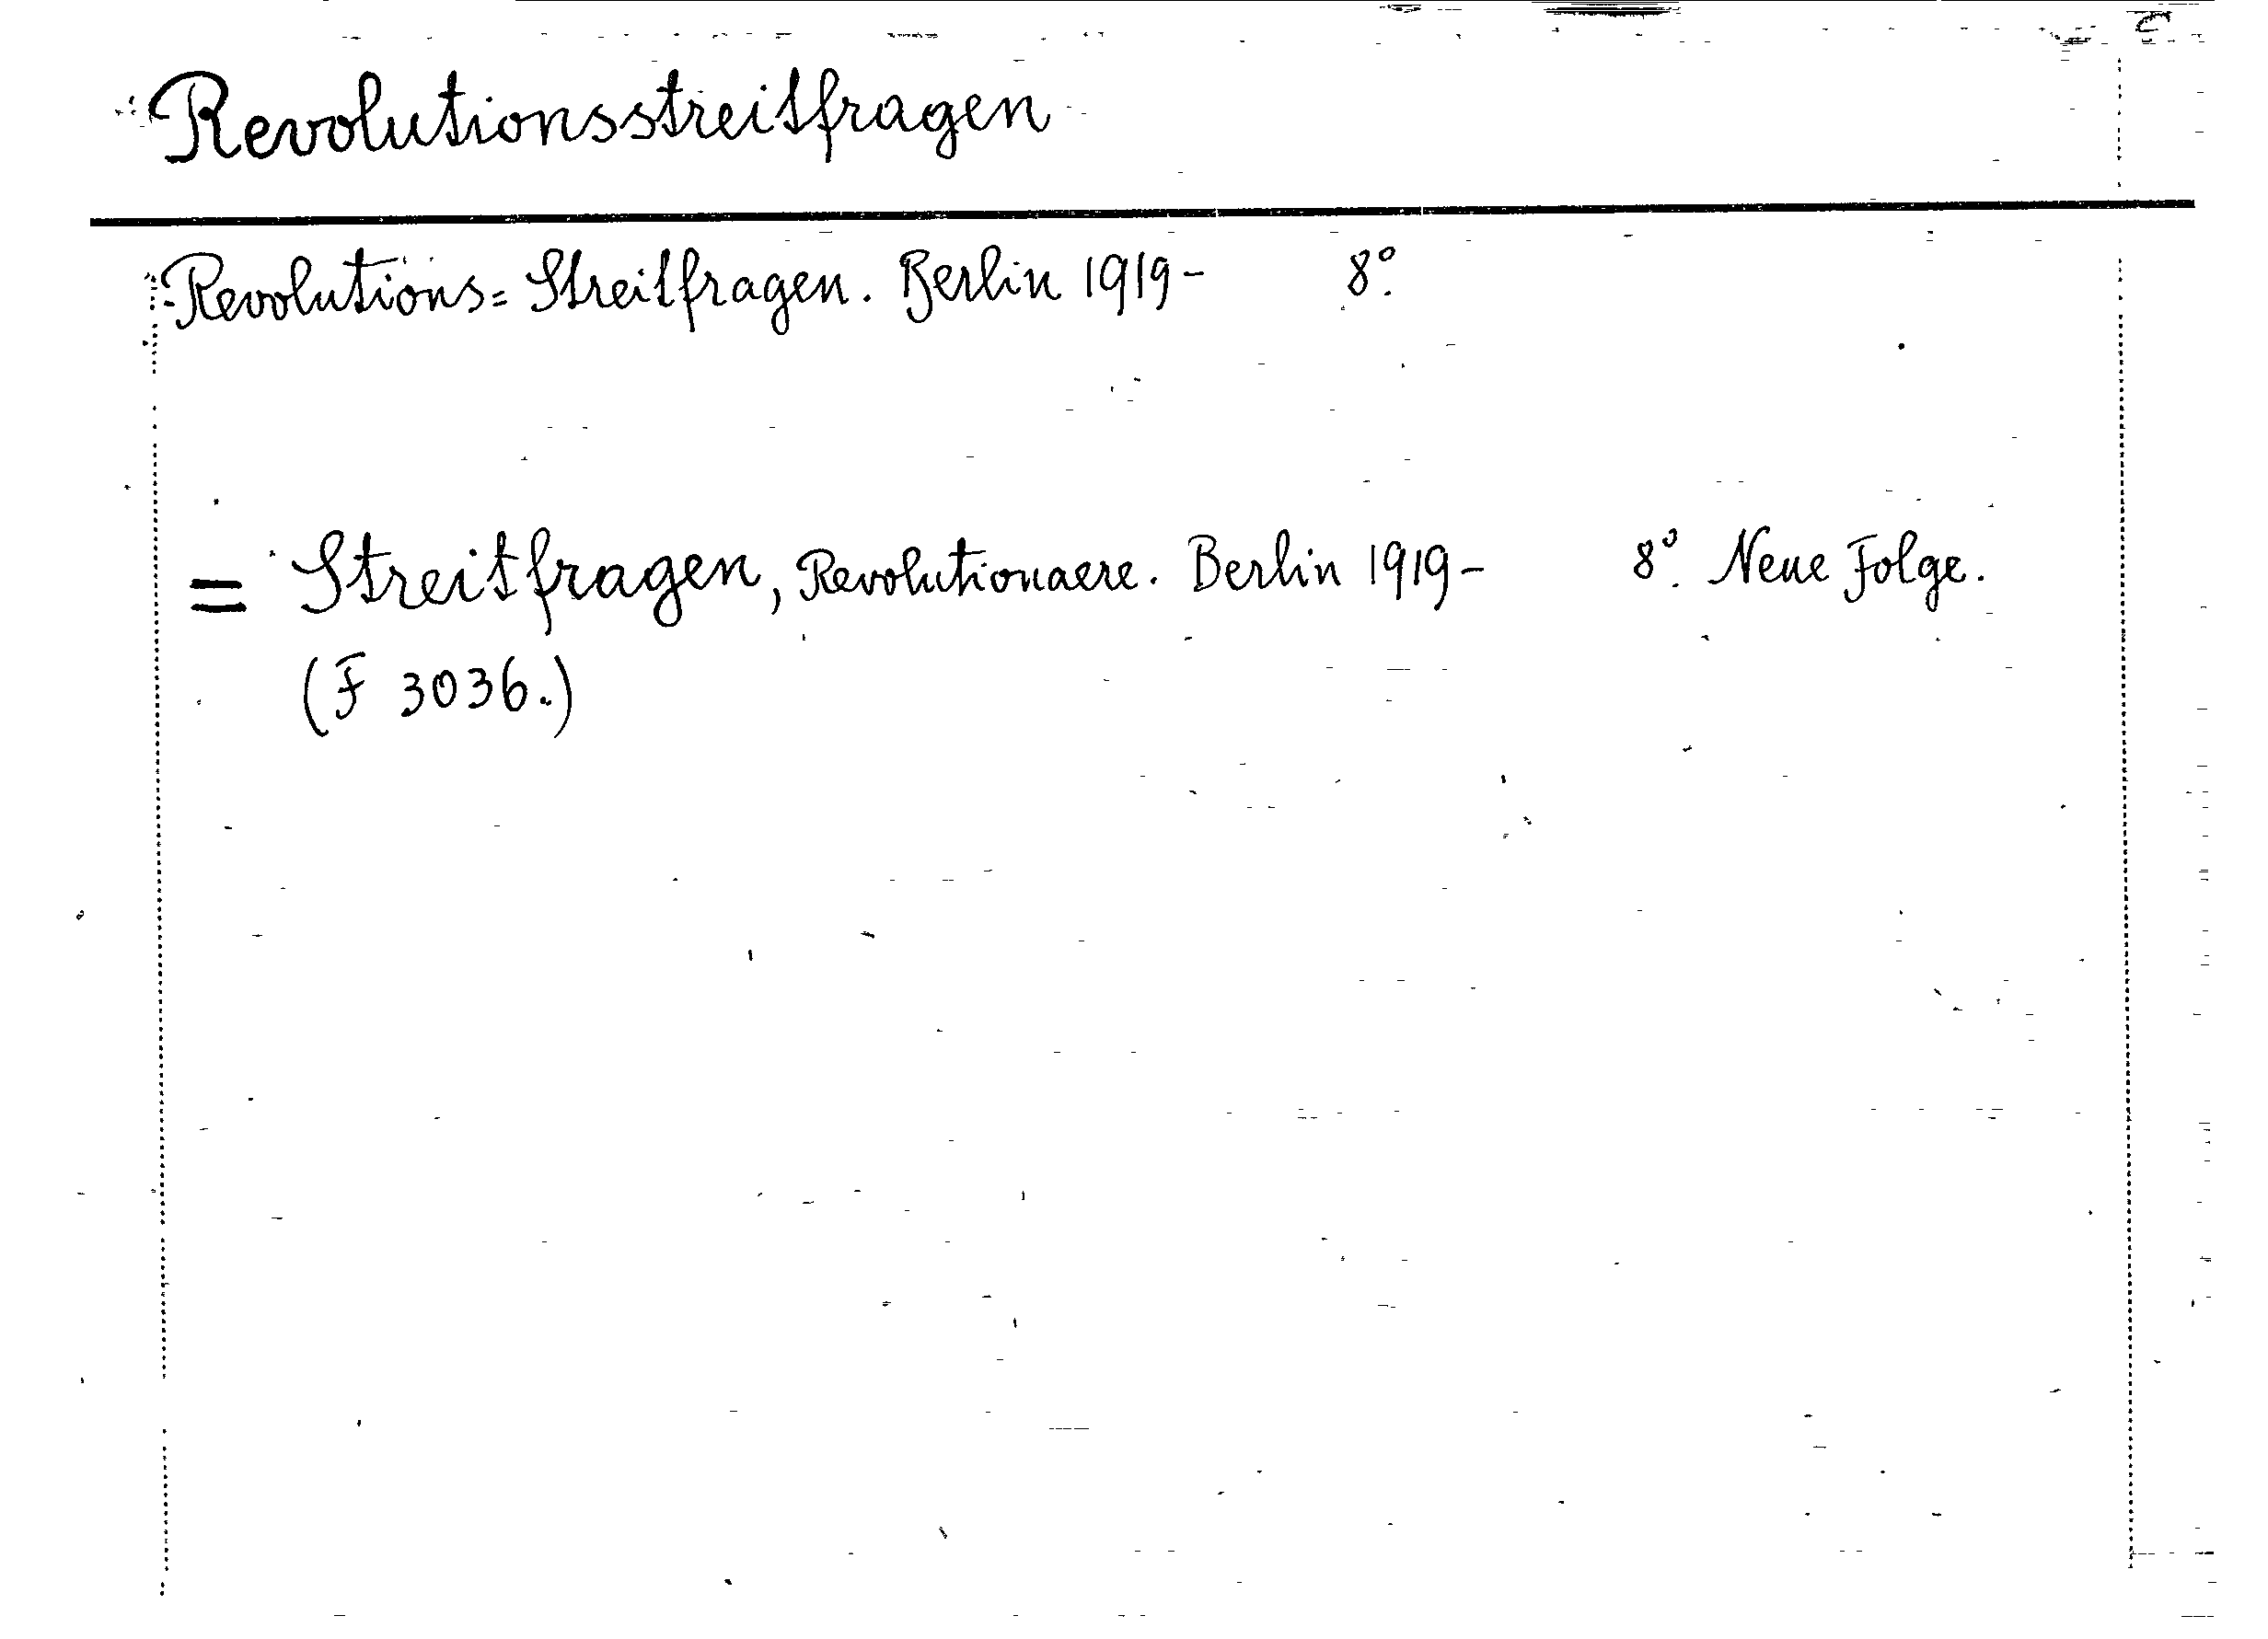 Revolutionsstreitfragen
Revolutions= Streitfragen. Berlin 1919- 8°.
= Streitfragen, Revolutionaere. Berlin 1919- 8°. Neue Folge.
(F 3036.)